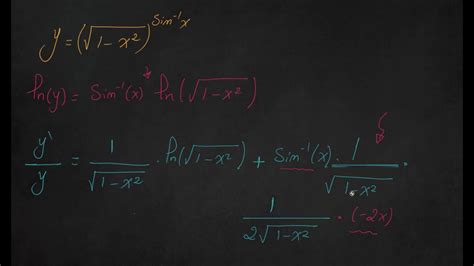 y = (√(1-x²))^(Sin⁻¹x)
ln(y) = Sin⁻¹(x) ln(√(1-x²))
y'/y = 1/√(1-x²) · ln(√(1-x²)) + Sin⁻¹(x) · 1/√(1-x²) ·
1/(2√(1-x²)) · (-2x)